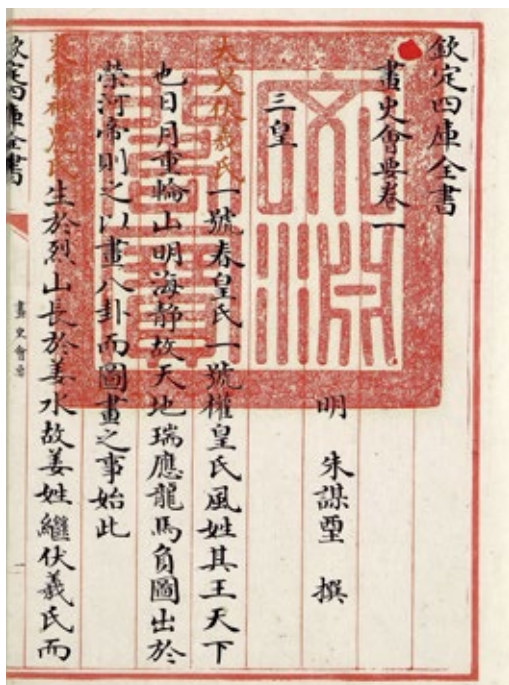 欽定四庫全書
畫史會要卷一
明 朱謀垔 撰
三皇
太昊伏羲氏一號春皇氏一號權皇氏風姓其王天下
也日月重輪山明海静故天地瑞應龍馬負圖出於
榮河帝則之以畫八卦而圖畫之事始此
炎帝神農氏生於烈山長於姜水故姜姓繼伏羲氏而
欽定四庫全書
畫史會要
一
文淵
閣寶